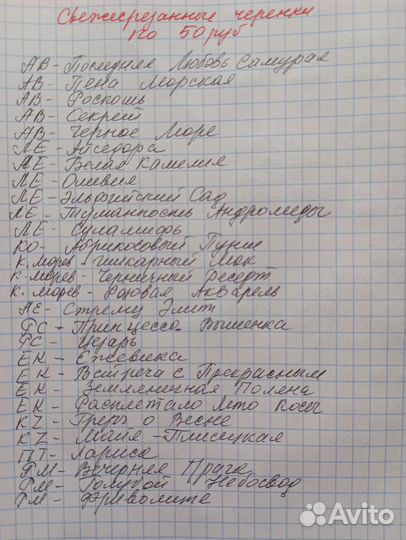 Свежесрезанные черенки
по 50 руб
АВ - Последняя Любовь Самурая
АВ - Пена Морская
АВ - Роскошь
АВ - Секрет
АВ - Черное Море
ЛЕ - Айседора
ЛЕ - Белая Камелия
ЛЕ - Оливия
ЛЕ - Эльфийский Сад
ЛЕ - Туманность Андромеды
ЛЕ - Суламифь
КО - Абрикосовый Пунш
К. Морев - Шикарный Шок
К. Морев - Черничный Десерт
К. Морев - Розовая Акварель
АЕ - Стремц Элит
ФС - Принцесса Вишенка
ФС - Цезарь
ЕК - Ежевика
ЕК - Встреча с Прекрасным
ЕК - Земляничная Поляна
ЕК - Расплетало Лето Косы
KZ - Грезы о Весне
KZ - Майя - Плисецкая
ПТ - Лариса
РМ - Вечерняя Прага
РМ - Голубой Небосвод
РМ - Фриволите
Avito